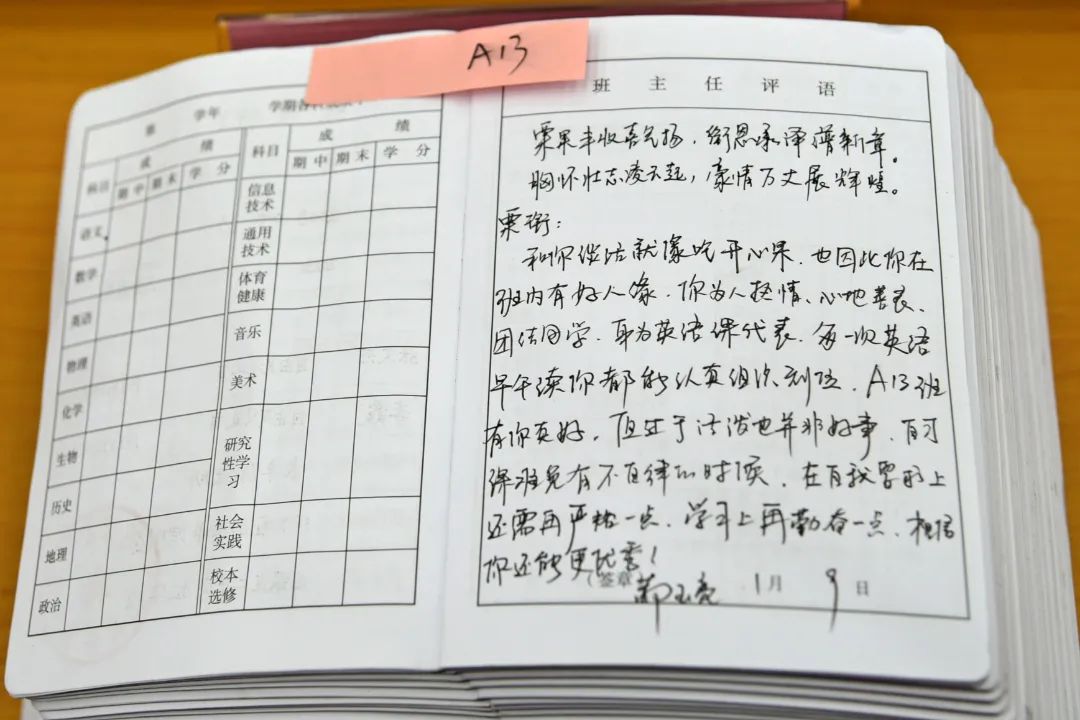 A13
学年
学期各
科目
成绩
期中
期末
学分
科目
成绩
期中
期末
学分
语文
数学
英语
物理
化学
生物
历史
地理
政治
信息技术
通用技术
体育健康
音乐
美术
研究性学习
社会实践
校本选修
班主任评语
栗果丰收喜气扬，衔恩承泽谱新章。
胸怀壮志凌云起，豪情万丈展辉煌。
栗衔：
和你谈话就像吃开心果，也因此你在
班内有好人缘，你为人热情、心地善良、
团结同学，身为英语课代表，每一次英语
早午读你都能认真组织到位，A13班
有你真好，但过于活泼也并非好事，自习
课难免有不自律的时候，在自我要求上
还需再严格一点，学习上再勤奋一点，相信
你还能更优秀！
（签章
1月9日